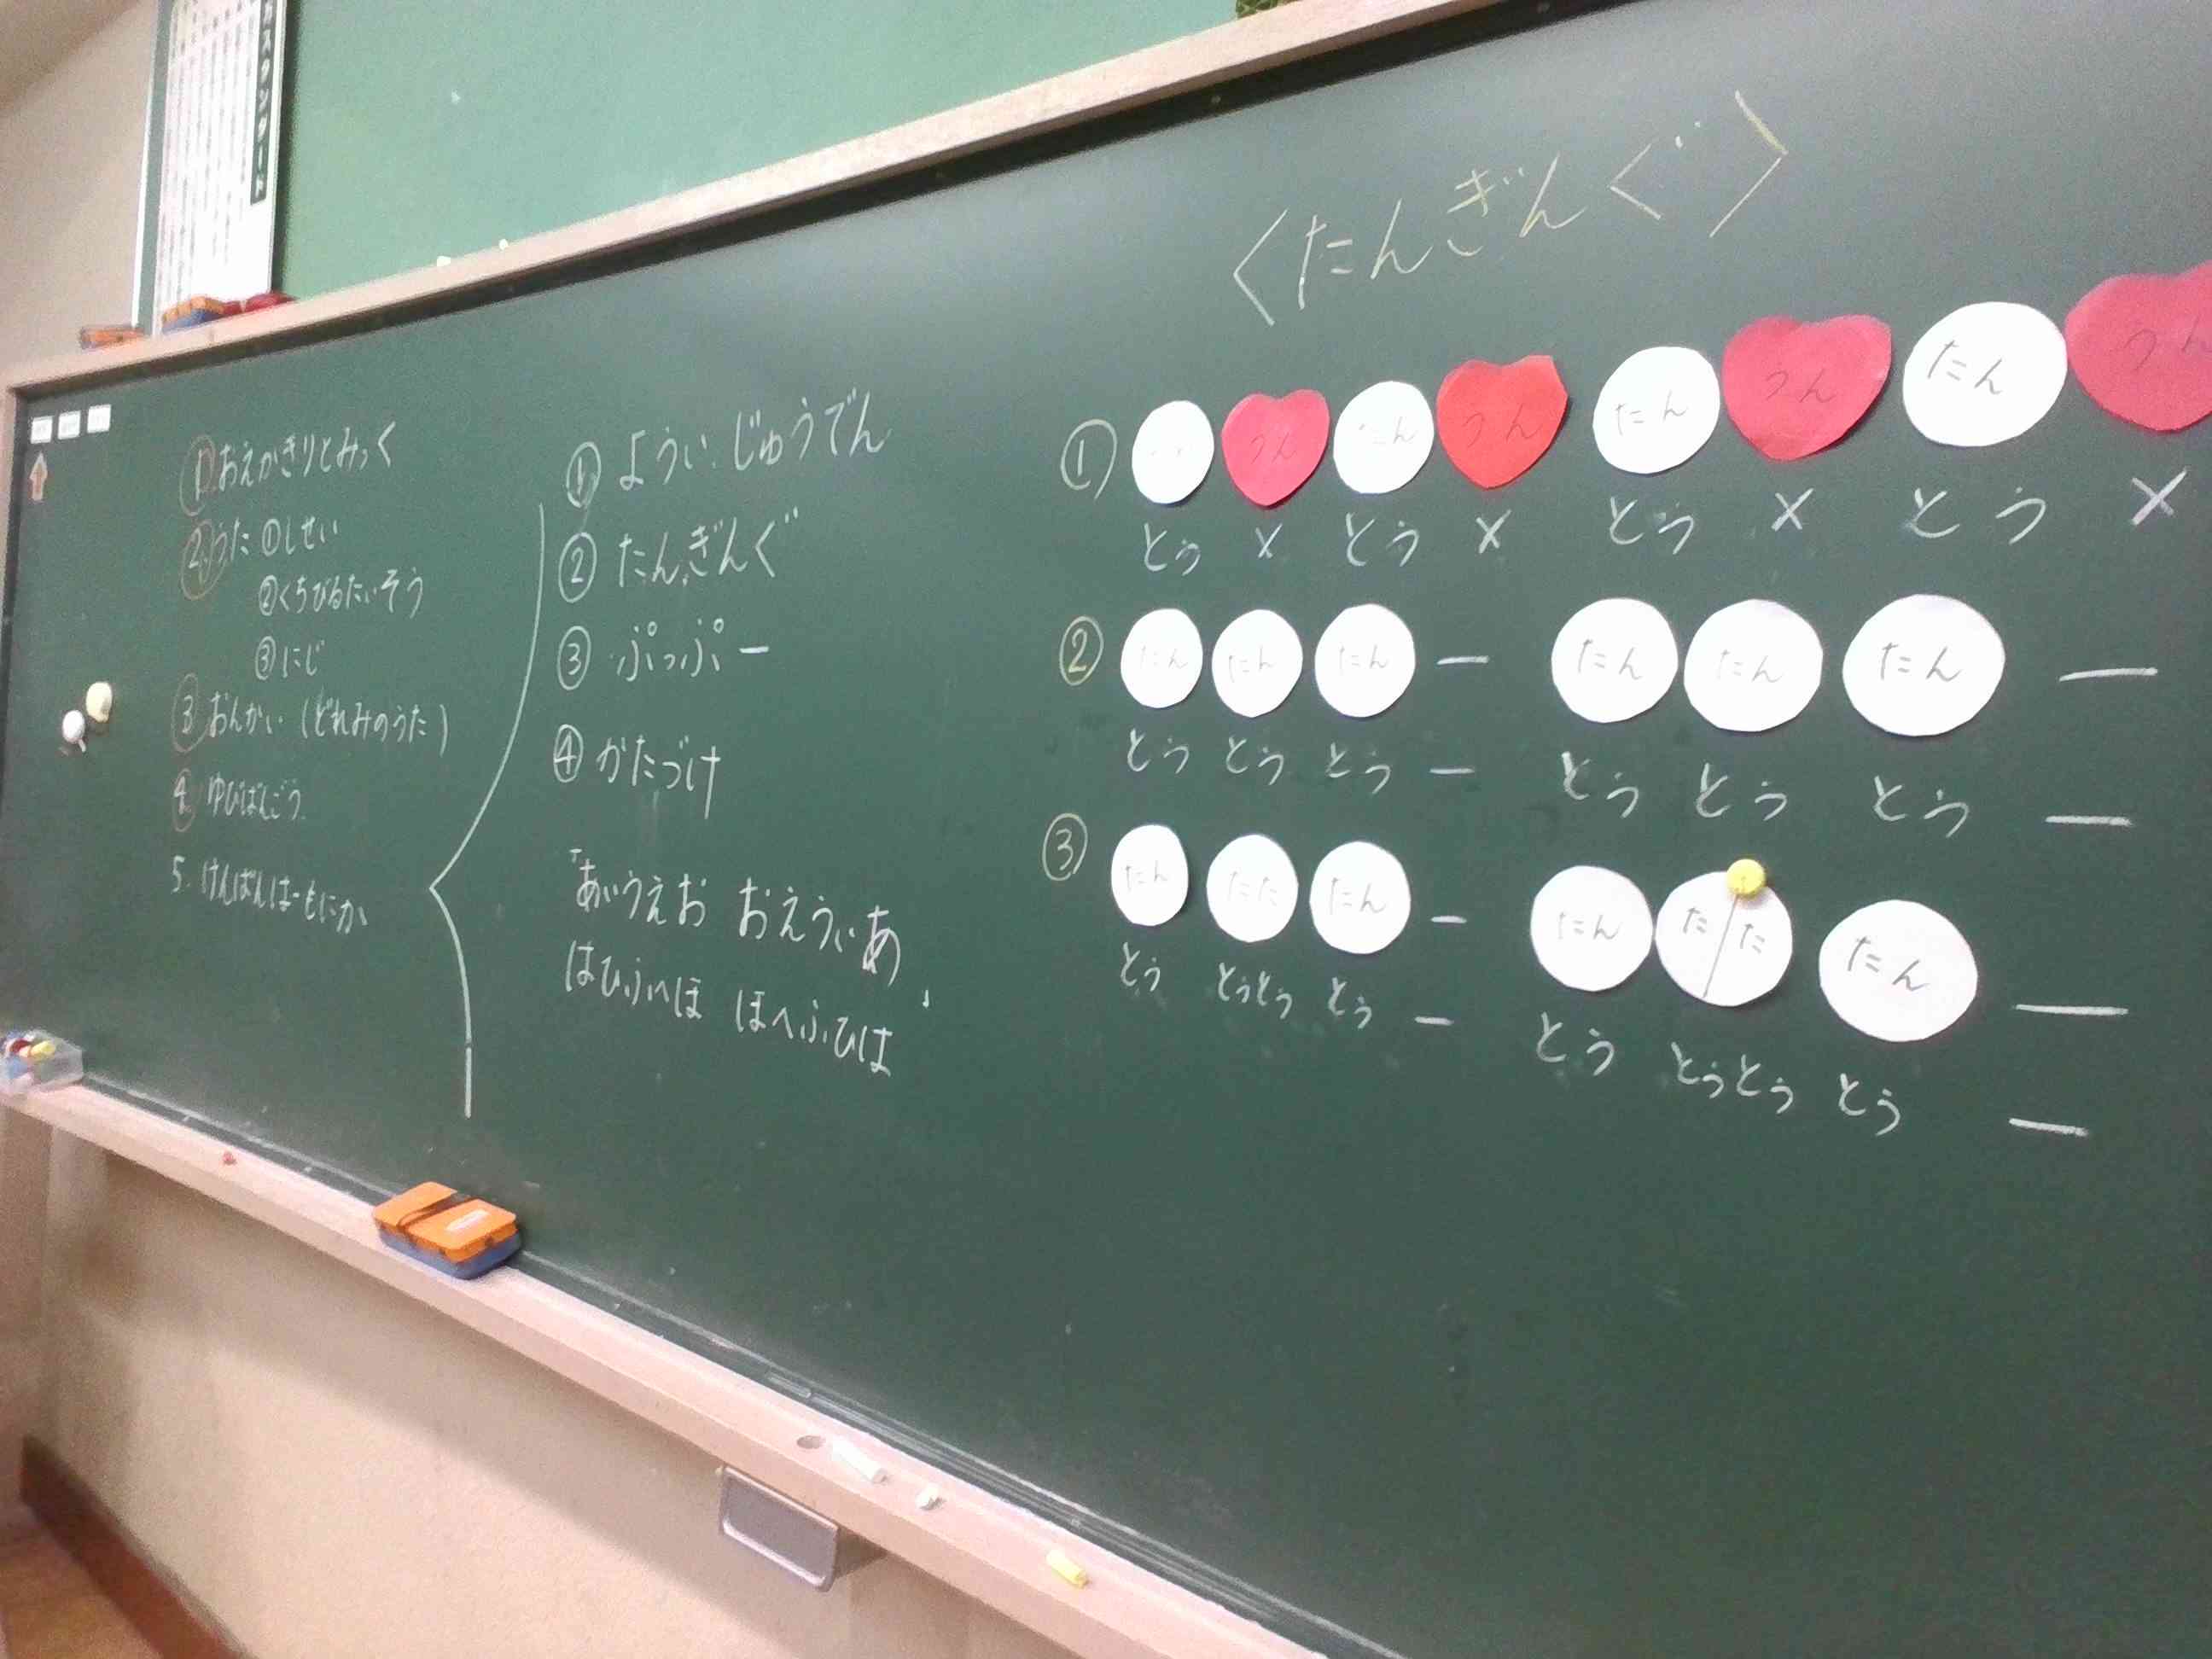 スタンダード
①おえかきりとみっく
②うた ①しせい
②くちびるたいそう
③にじ
③おんかい(どれみのうた)
④ゆびばんごう
5.けんばんはーもにか
①ようい.じゅうでん
②たんぎんぐ
③ぷっぷー
④かたづけ
「あいうえお おえういあ
はひふへほ ほへふひは」
〈たんぎんぐ〉
① うん たん うん たん うん たん うん
とぅ × とぅ × とぅ × とぅ ×
② たん たん たん ー たん たん たん ー
とぅ とぅ とぅ ー とぅ とぅ とぅ ー
③ たん たた たん ー たん た/た たん ー
とぅ とぅとぅ とぅ ー とぅ とぅとぅ とぅ ー